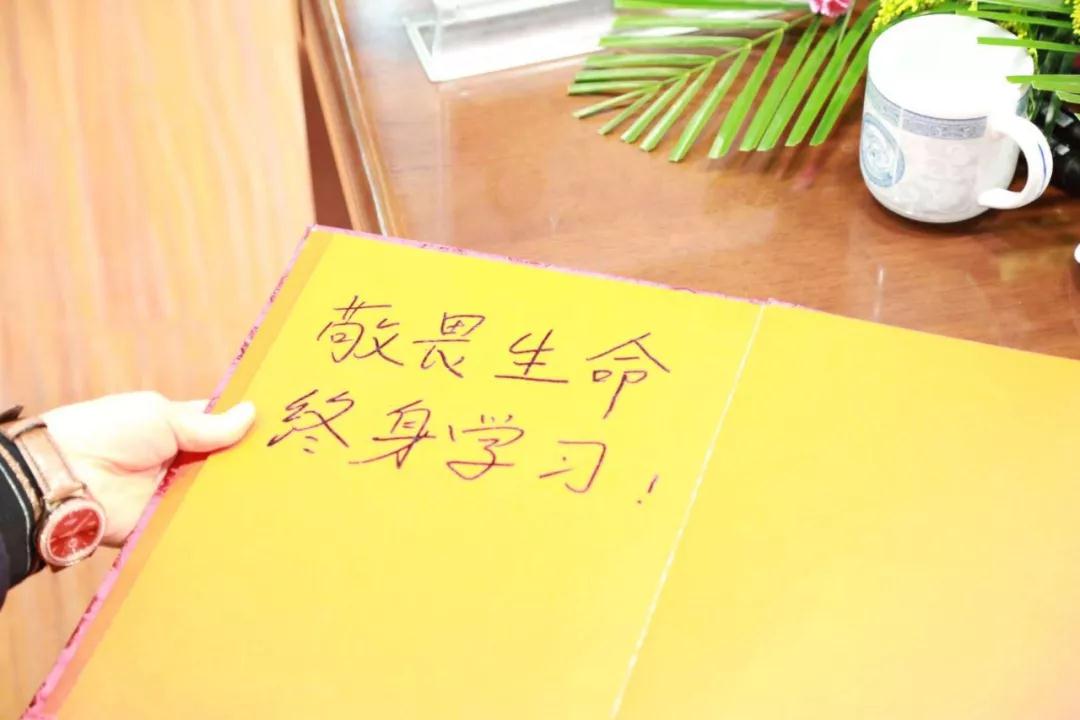 敬畏生命
终身学习!